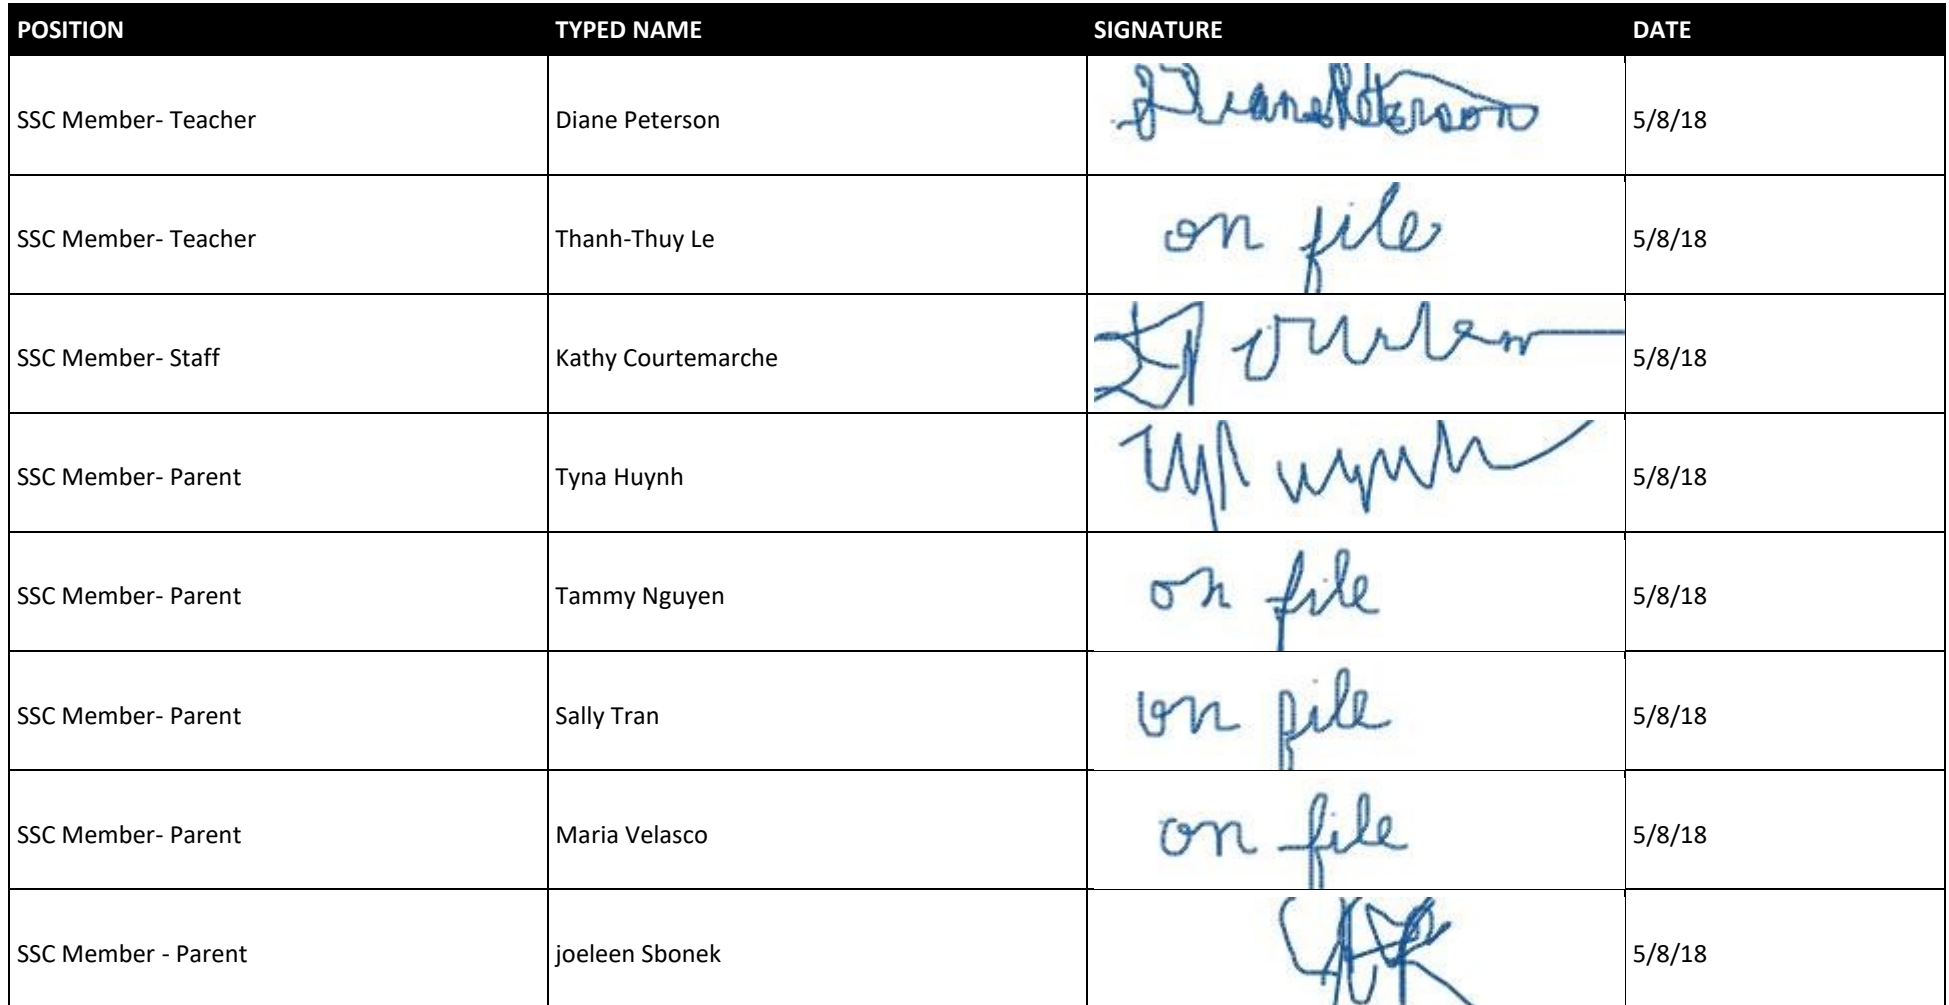 POSITION TYPED NAME SIGNATURE DATE
SSC Member- Teacher Diane Peterson Diane Peterson 5/8/18
SSC Member- Teacher Thanh-Thuy Le on file 5/8/18
SSC Member- Staff Kathy Courtemarche 5/8/18
SSC Member- Parent Tyna Huynh 5/8/18
SSC Member- Parent Tammy Nguyen on file 5/8/18
SSC Member- Parent Sally Tran on file 5/8/18
SSC Member- Parent Maria Velasco on file 5/8/18
SSC Member - Parent joeleen Sbonek 5/8/18